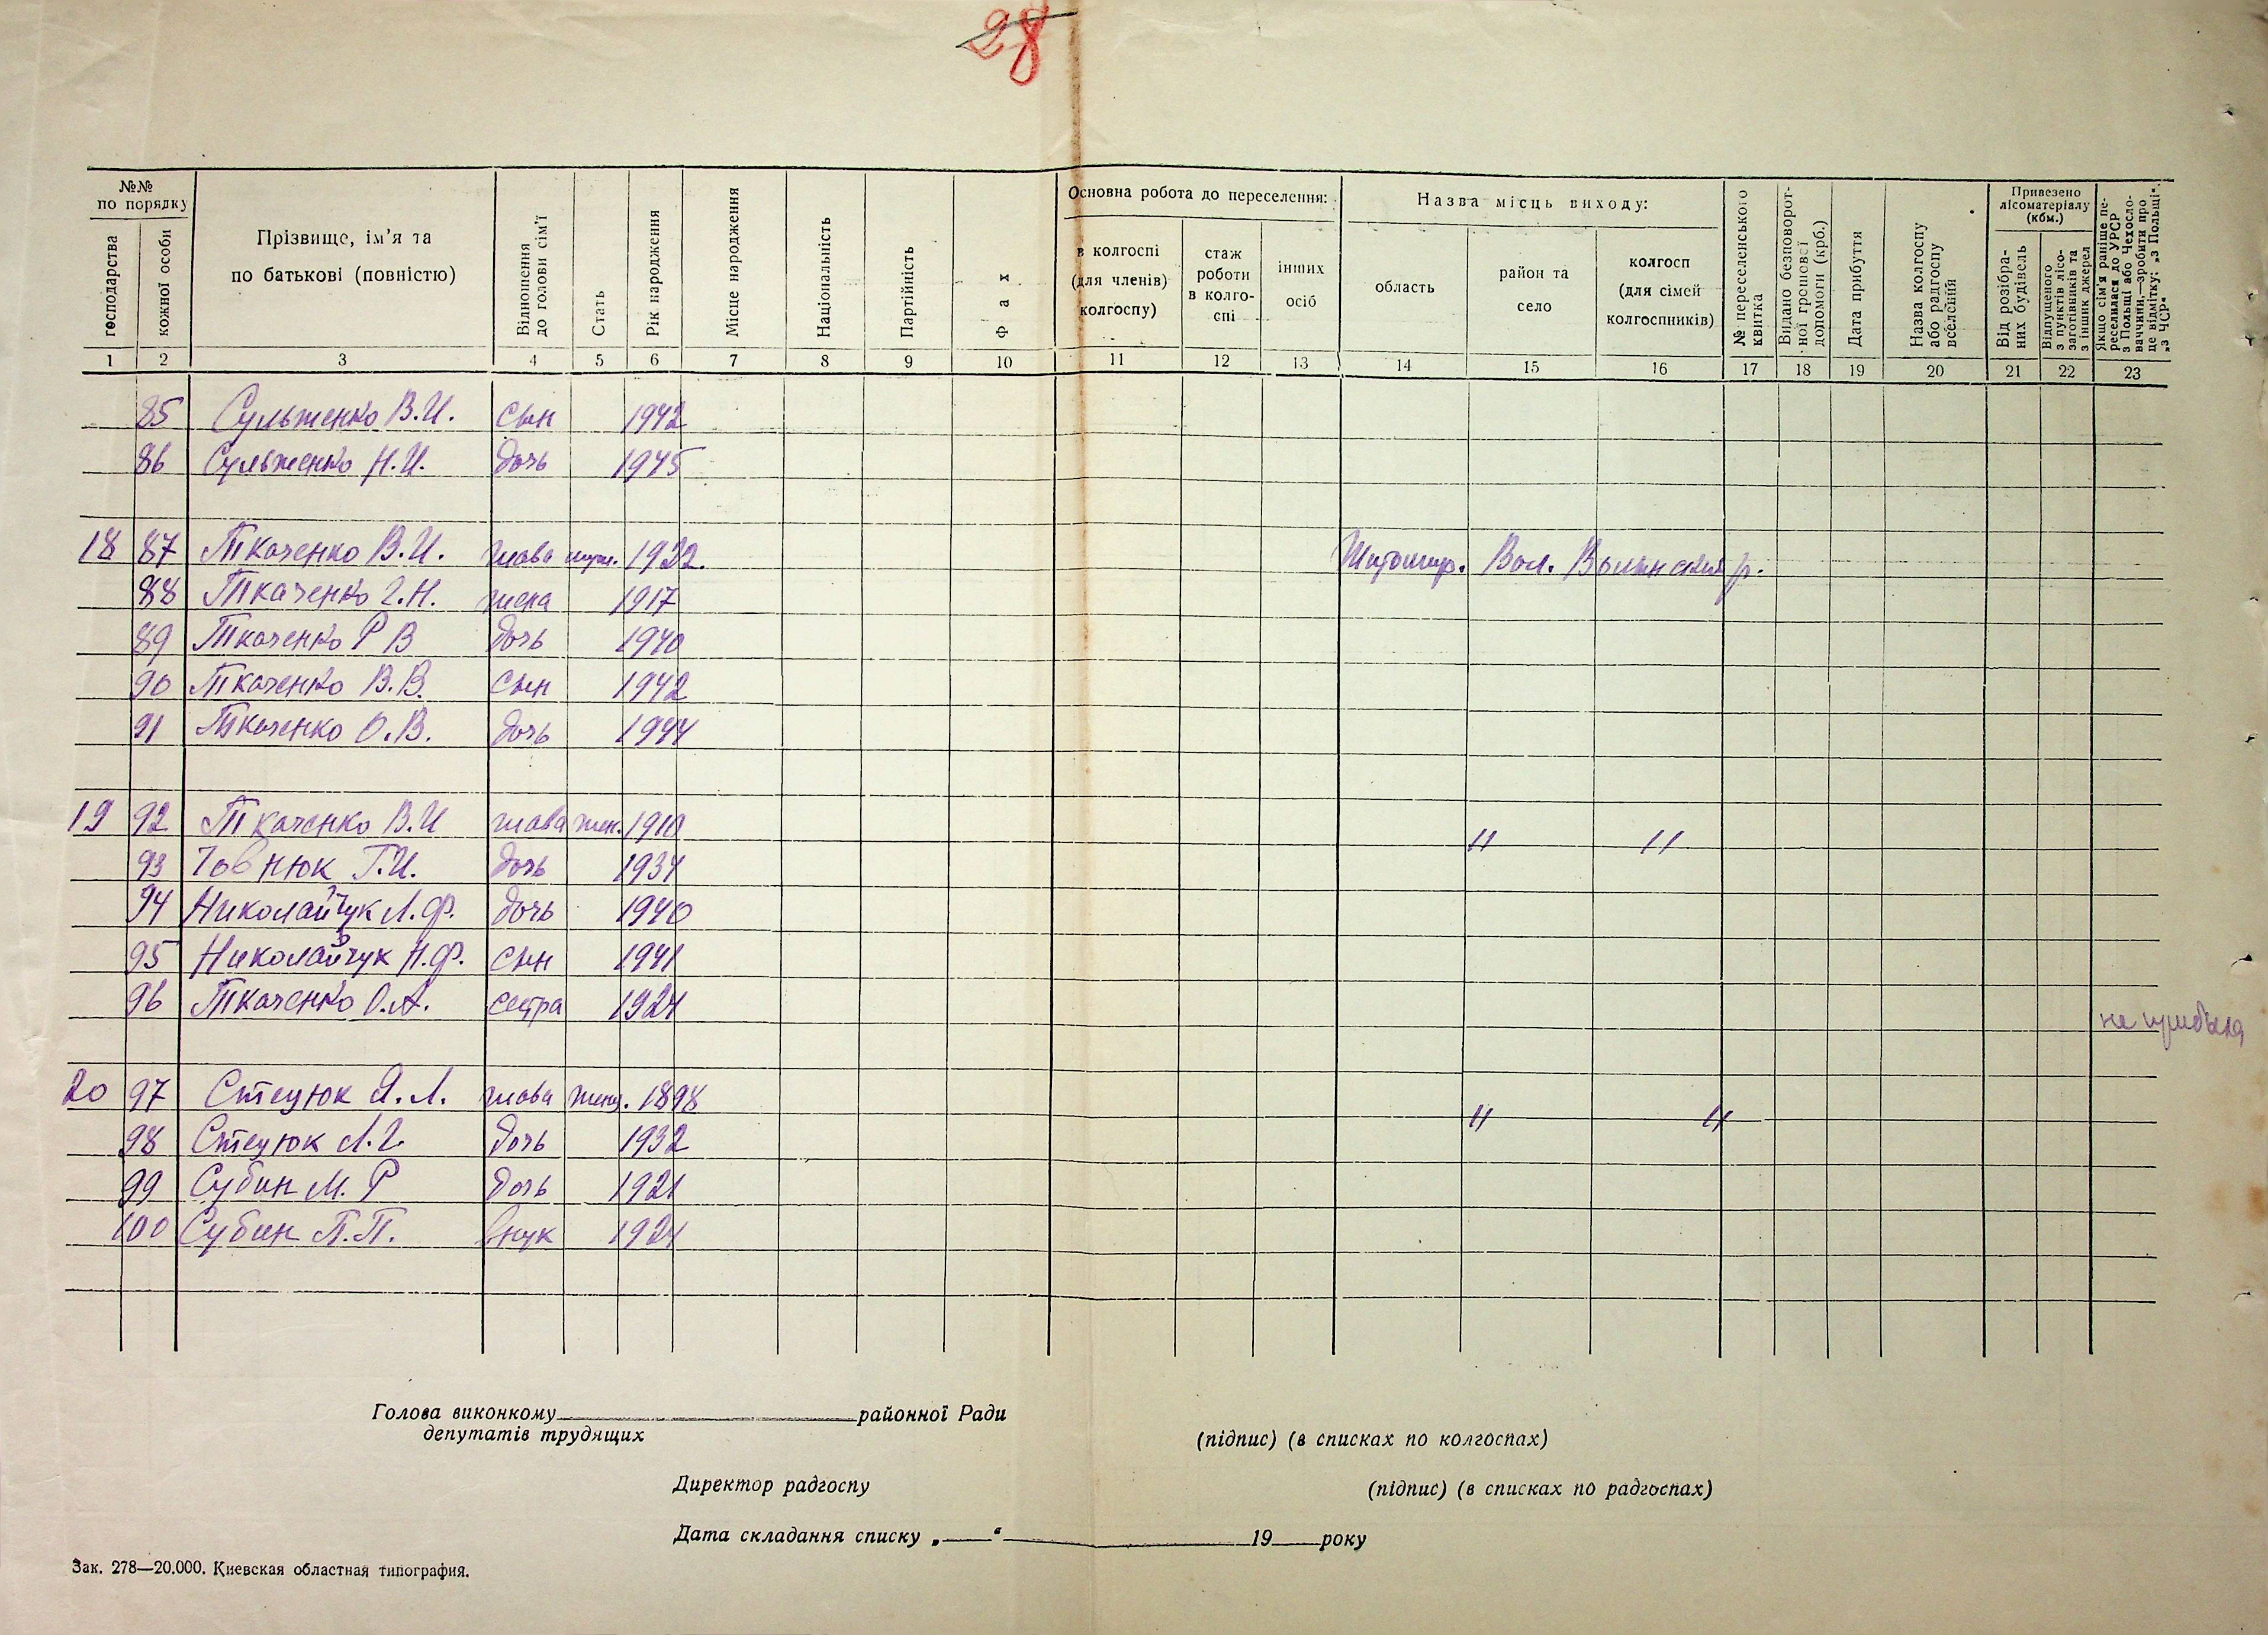 28
№№ по порядку
господарства
кожної особи
Прізвище, ім’я та по батькові (повністю)
Відношення до голови сім’ї
Стать
Рік народження
Місце народження
Національність
Партійність
Фах
Основна робота до переселення:
в колгоспі (для членів) колгоспу)
стаж роботи в колго-спі
інших осіб
Назва місць виходу:
область
район та село
колгосп (для сімей колгоспників)
№ переселенського квитка
Видано безповорот-ної грошової допомоги (крб.)
Дата прибуття
Назва колгоспу або радгоспу вселення
Привезено лісоматеріалу (кбм.)
Від розібра-них будівель
Відпущеного з пунктів лісо-заготівників та з інших джерел
Якщо сім’я раніше пе-реселилася до УРСР з Польщі або Чехосло-ваччини,—зробити про це відмітку: „з Польщі“, „з ЧСР“
1 2 3 4 5 6 7 8 9 10 11 12 13 14 15 16 17 18 19 20 21 22 23
85 Сульженко В.И. сын 1942
86 Сульженко Н.И. дочь 1945
18 87 Ткаченко В.И. глава муж. 1922. Житомир. Вол. Волынский р.
88 Ткаченко Г.Н. жена 1917
89 Ткаченко Р В дочь 1940
90 Ткаченко В.В. сын 1942
91 Ткаченко О.В. дочь 1944
19 92 Ткаченко В.И глава жен. 1910 " "
93 Товнюк Г.И. дочь 1934
94 Николайчук Л.Ф. дочь 1940
95 Николайчук Н.Ф. сын 1941
96 Ткаченко О.А. сестра 1924 не прибыла
20 97 Стецюк Я.Л. глава женщ. 1898 " "
98 Стецюк Л.Г. дочь 1932
99 Субин М. Р дочь 1921
100 Субин П.П. внук 1924
Голова виконкому районної Ради
депутатів трудящих
(підпис) (в списках по колгоспах)
Директор радгоспу (підпис) (в списках по радгоспах)
Дата складання списку „ “ 19 року
Зак. 278—20.000. Киевская областная типография.